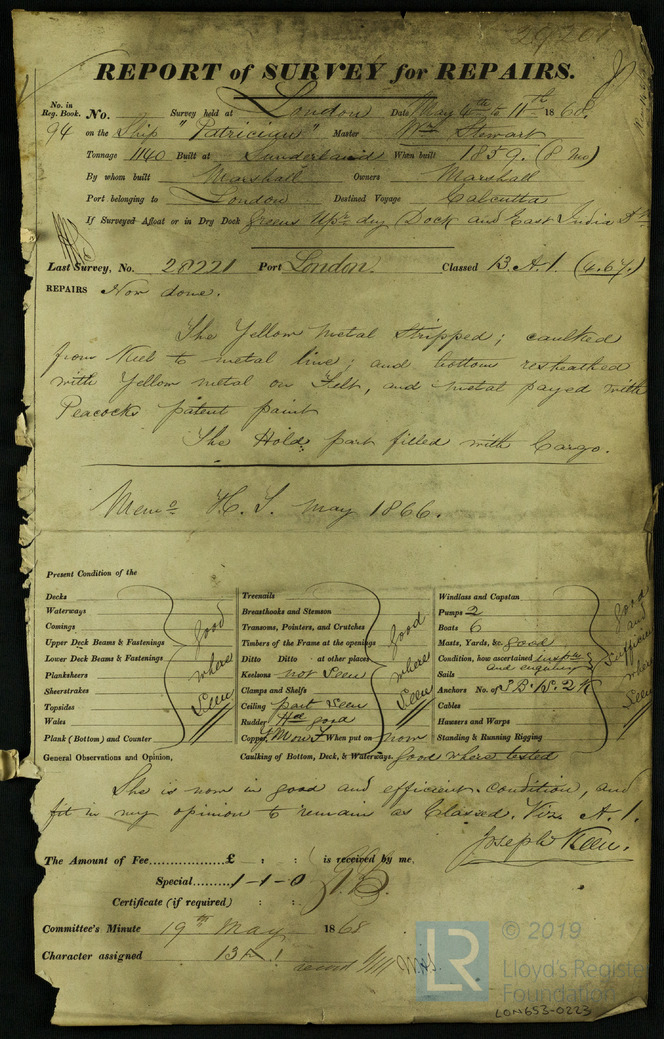 29201
REPORT of SURVEY for REPAIRS.
No. in Reg. Book. No. Survey held at London Date May 4th to 11th 1868
94 on the Ship "Patrician" Master Wm Stewart
Tonnage 1140 Built at Sunderland When built 1859. (8 Mo)
By whom built Marshall Owners Marshall
Port belonging to London Destined Voyage Calcutta
If Surveyed Afloat or in Dry Dock Greens Upr dry Dock and East India Dk
Last Survey, No. 28221 Port London. Classed 13. A. 1. (4.67.)
REPAIRS Now done.
The Yellow Metal Stripped; caulked
from Keel to metal line; and bottom resheathed
with Yellow metal on Felt, and metal payed with
Peacocks patent paint
The Hold; part filled with Cargo.
Memo H. S. May 1866.
Present Condition of the
Decks
Waterways
Comings
Upper Deck Beams & Fastenings
Lower Deck Beams & Fastenings
Planksheers
Sheerstrakes
Topsides
Wales
Plank (Bottom) and Counter
good where Seen
Treenails
Breasthooks and Stemson
Transoms, Pointers, and Crutches
Timbers of the Frame at the openings
Ditto Ditto at other places
Keelsons not Seen
Clamps and Shelfs
Ceiling part Seen
Rudder Hd good
Copper When put on now
good where Seen
Windlass and Capstan
Pumps 2
Boats 6
Masts, Yards, &c good
Condition, how ascertained and enquiry
Sails
Anchors No. of
Cables
Hawsers and Warps
Standing & Running Rigging
good and Sufficient where Seen
General Observations and Opinion,
Caulking of Bottom, Deck, & Waterways. good where tested
She is now in good and efficient condition, and
fit in my opinion to remain as Classed. Viz. A. 1.
Joseph Keen.
The Amount of Fee............£ : : is received by me,
Special.........1-1-0
Certificate (if required) : :
Committee's Minute 19th May 1868
Character assigned 13 A. 1
LR
© 2019
Lloyd's Register
Foundation
LON653-0223